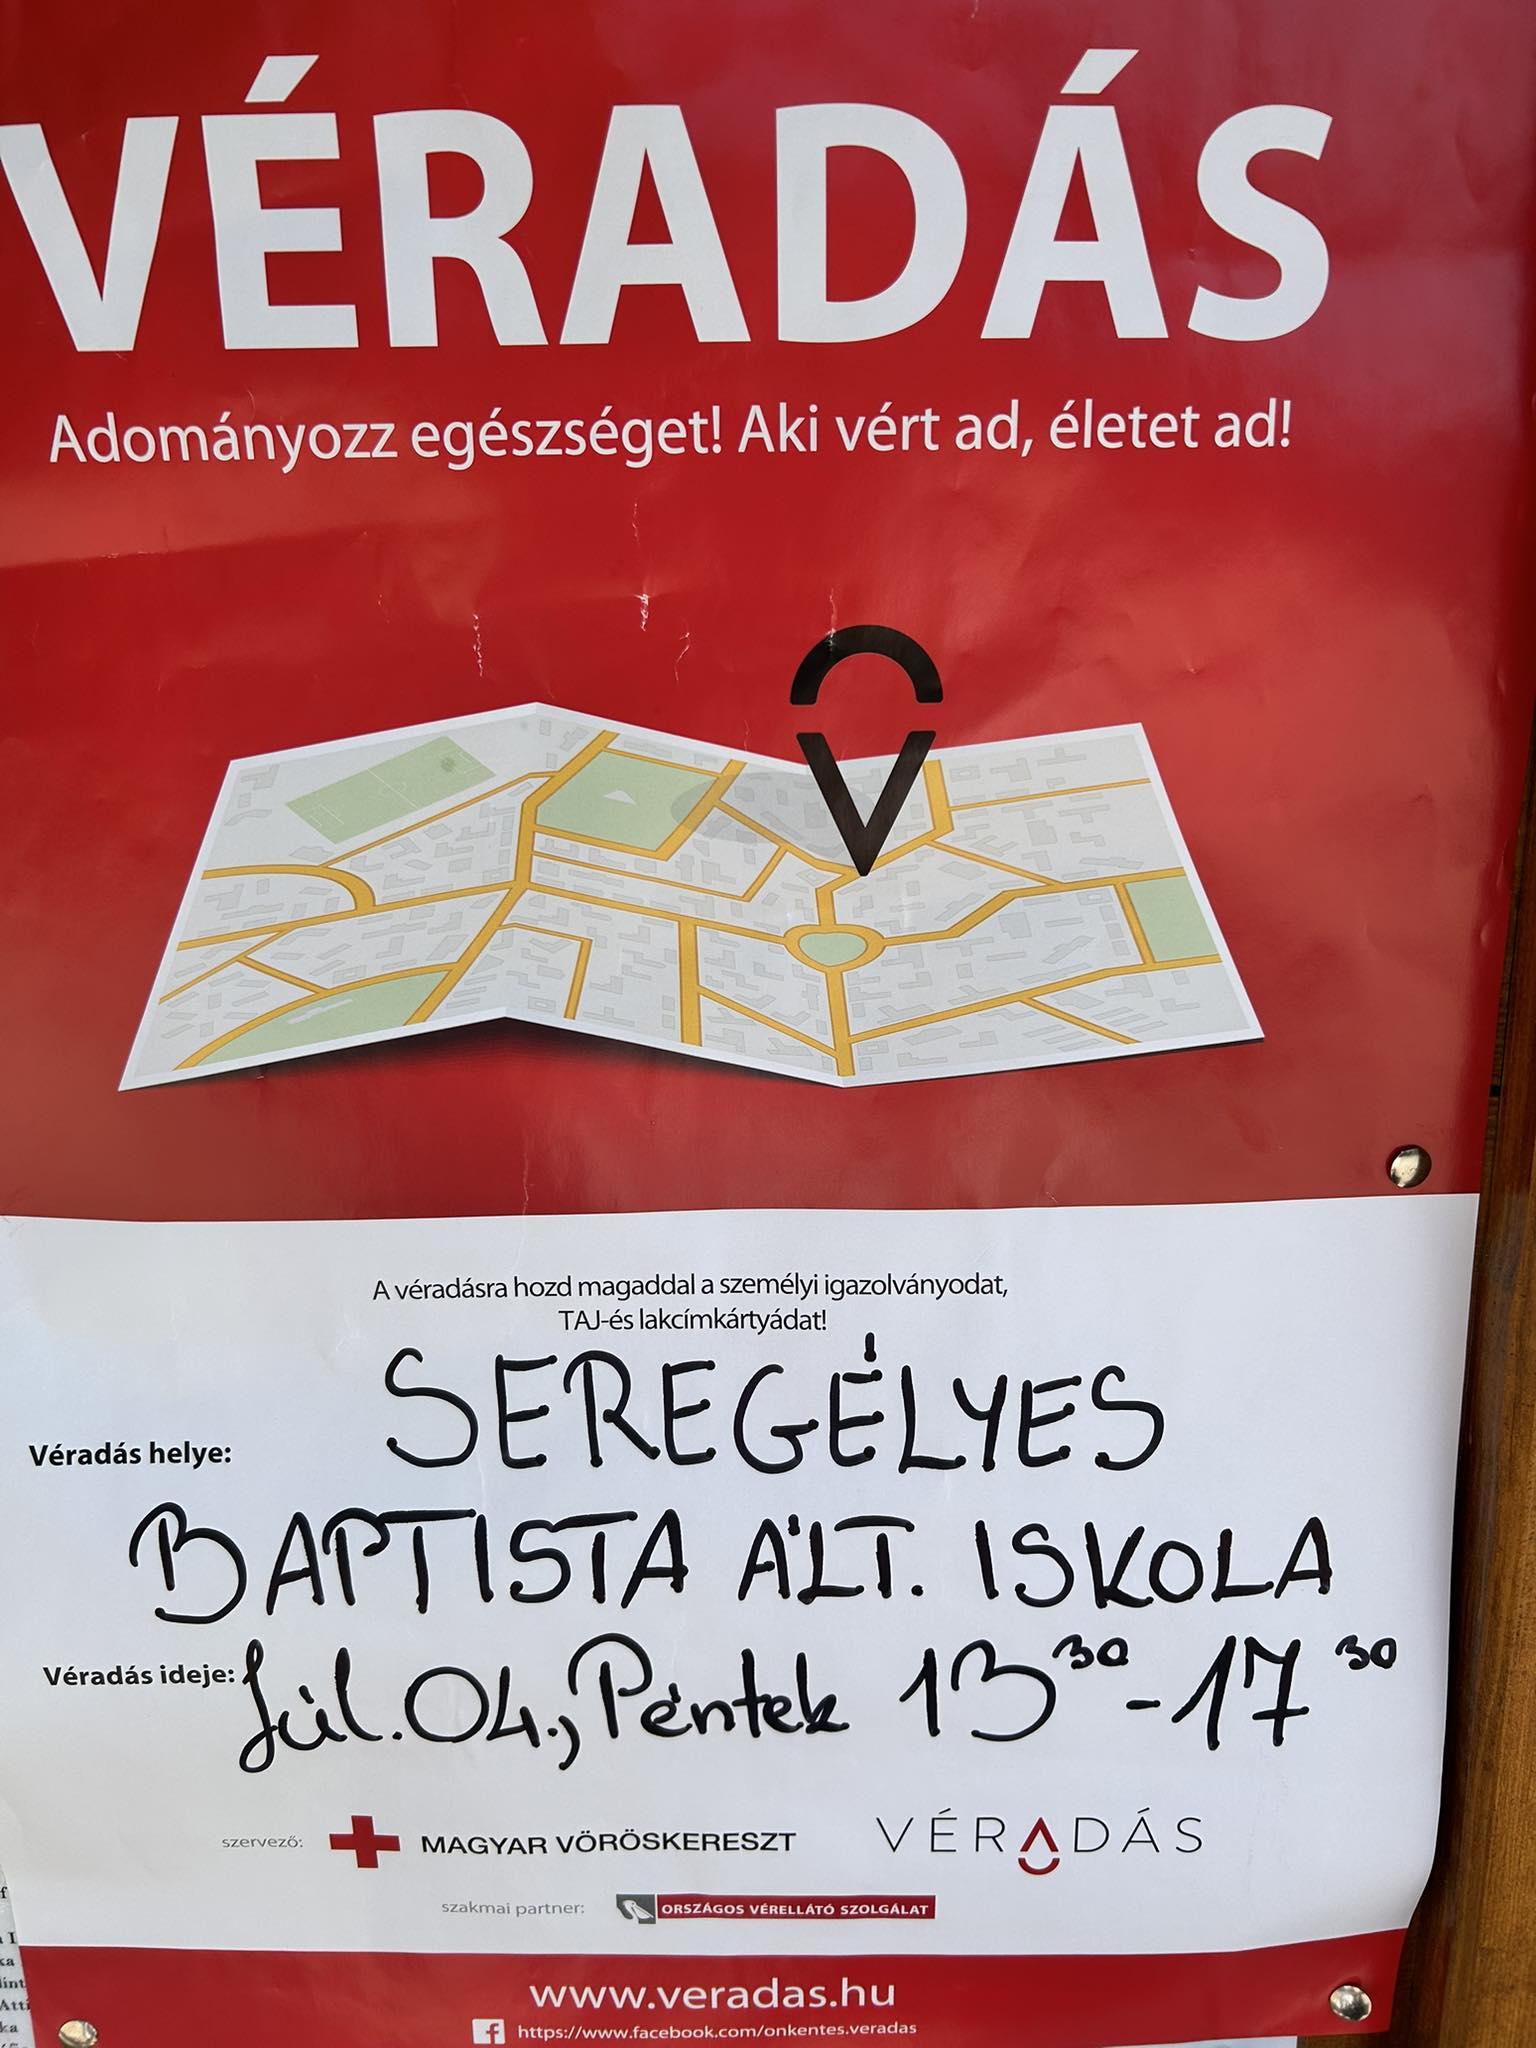 VÉRADÁS
Adományozz egészséget! Aki vért ad, életet ad!
A véradásra hozd magaddal a személyi igazolványodat,
TAJ-és lakcímkártyádat!
Véradás helye: SEREGÉLYES
BAPTISTA ÁLT. ISKOLA
Véradás ideje: Júl. 04., Péntek 13 30 - 17 30
szervező: MAGYAR VÖRÖSKERESZT VÉRADÁS
szakmai partner: ORSZÁGOS VÉRELLÁTÓ SZOLGÁLAT
www.veradas.hu
https://www.facebook.com/onkentes.veradas